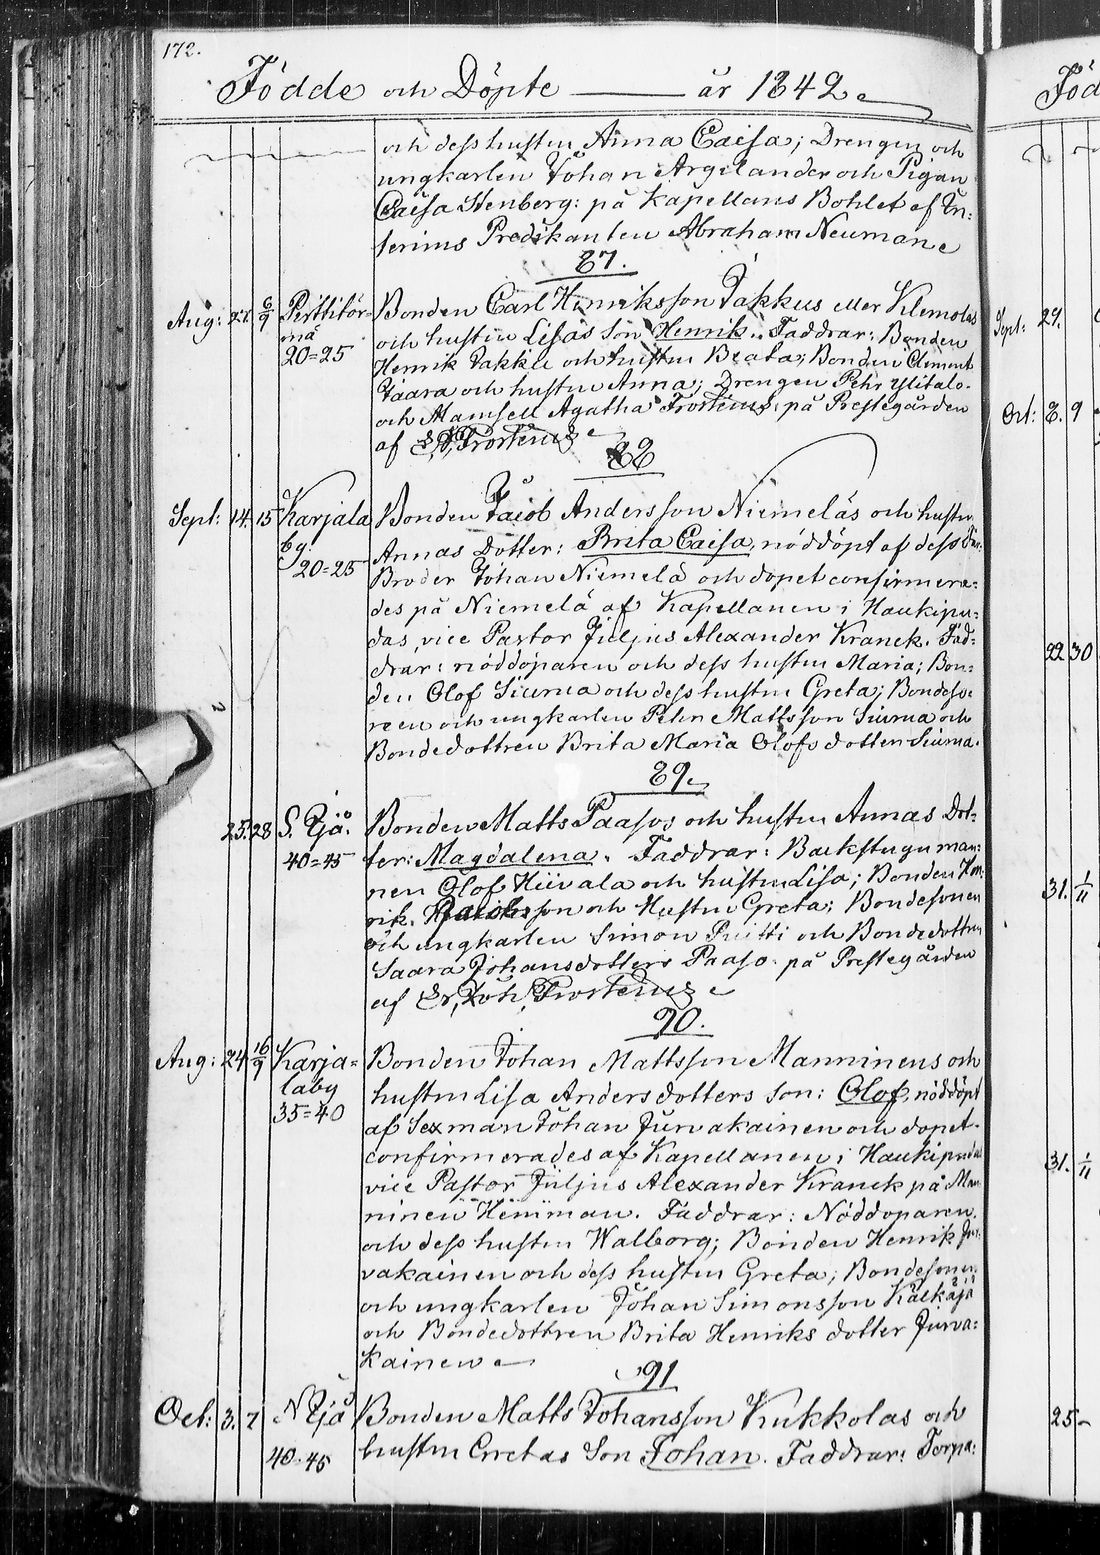 172.
Födde och Döpte — år 1842.
och dess hustru Anna Caisa; Drengen och
ungkarlen Johan Argelander och Pigan
Caisa Stenberg: på Kapellans Bohlet af In:
terims Predikanten Abraham Neuman
87.
Aug: 27. 6/9 Perttitör=
mä
20=25
Bonden Carl Henriksson Jakkus eller Klemolas
och hustru Lisas Son Henrik. Faddrar: Bonden
Henrik Jakkle och hustru Beata; Bonden Clement
Jaara och hustru Anna; Drengen Pehr Ylitalo
och Mamsell Agatha Frosterus; på Prestegården
af Frosterus
88
Sept: 14. 15 Karjala
by.
20=25
Bonden Jacob Andersson Niemeläs och hustru
Annas Dotter: Brita Caisa, nöddöpt af dess
Broder Johan Niemelä och dopet confirmera=
des på Niemelä af Kapellanen i Haukipu=
das, vice Pastor Juljus Alexander Kranck. Fad=
drar: nöddöparen och dess hustru Maria; Bon=
den Olof Siurua och dess hustru Greta; Bondeso=
nen och ungkarlen Pehr Mattsson Siurua och
Bondedottren Brita Maria Olofs dotter Siurua.
89.
25. 28 S. Ijå.
40=45
Bonden Matts Paasos och hustru Annas Dot=
ter: Magdalena. Faddrar: Backstugu man=
nen Olof Hiivala och hustru Lisa; Bonden Hen=
rik Jacobsson och Hustru Greta; Bondesonen
och ungkarlen Simon Puitti och Bondedottren
Saara Johansdotter Paaso. på Prestegården
af Er, Joh, Frosterus
90.
Aug: 24 16/9 Karja=
laby
35=40
Bonden Johan Mattsson Manninens och
hustru Lisa Andersdotters Son: Olof, nöddöpt
af Sexman Johan Jurvakainen och dopet
confirmerades af Kapellanen i Haukipudas
vice Pastor Juljus Alexander Kranck på Man
ninen Hemman. Faddrar: Nöddöparen
och dess hustru Walborg; Bonden Henrik Jur=
vakainen och dess hustru Greta; Bondesonen
och ungkarlen Johan Simonsson Kälkäjä
och Bondedottren Brita Henriks dotter Jurva=
kainen
91
Oct: 3. 7 N Ijå
40=45
Bonden Matts Johansson Kukkolas och
hustru Gretas Son Johan. Faddrar: Torpa=
Föd
Sept: 29.
Oct: 8. 9
22 30
31. 1/11
31. 1/11
25